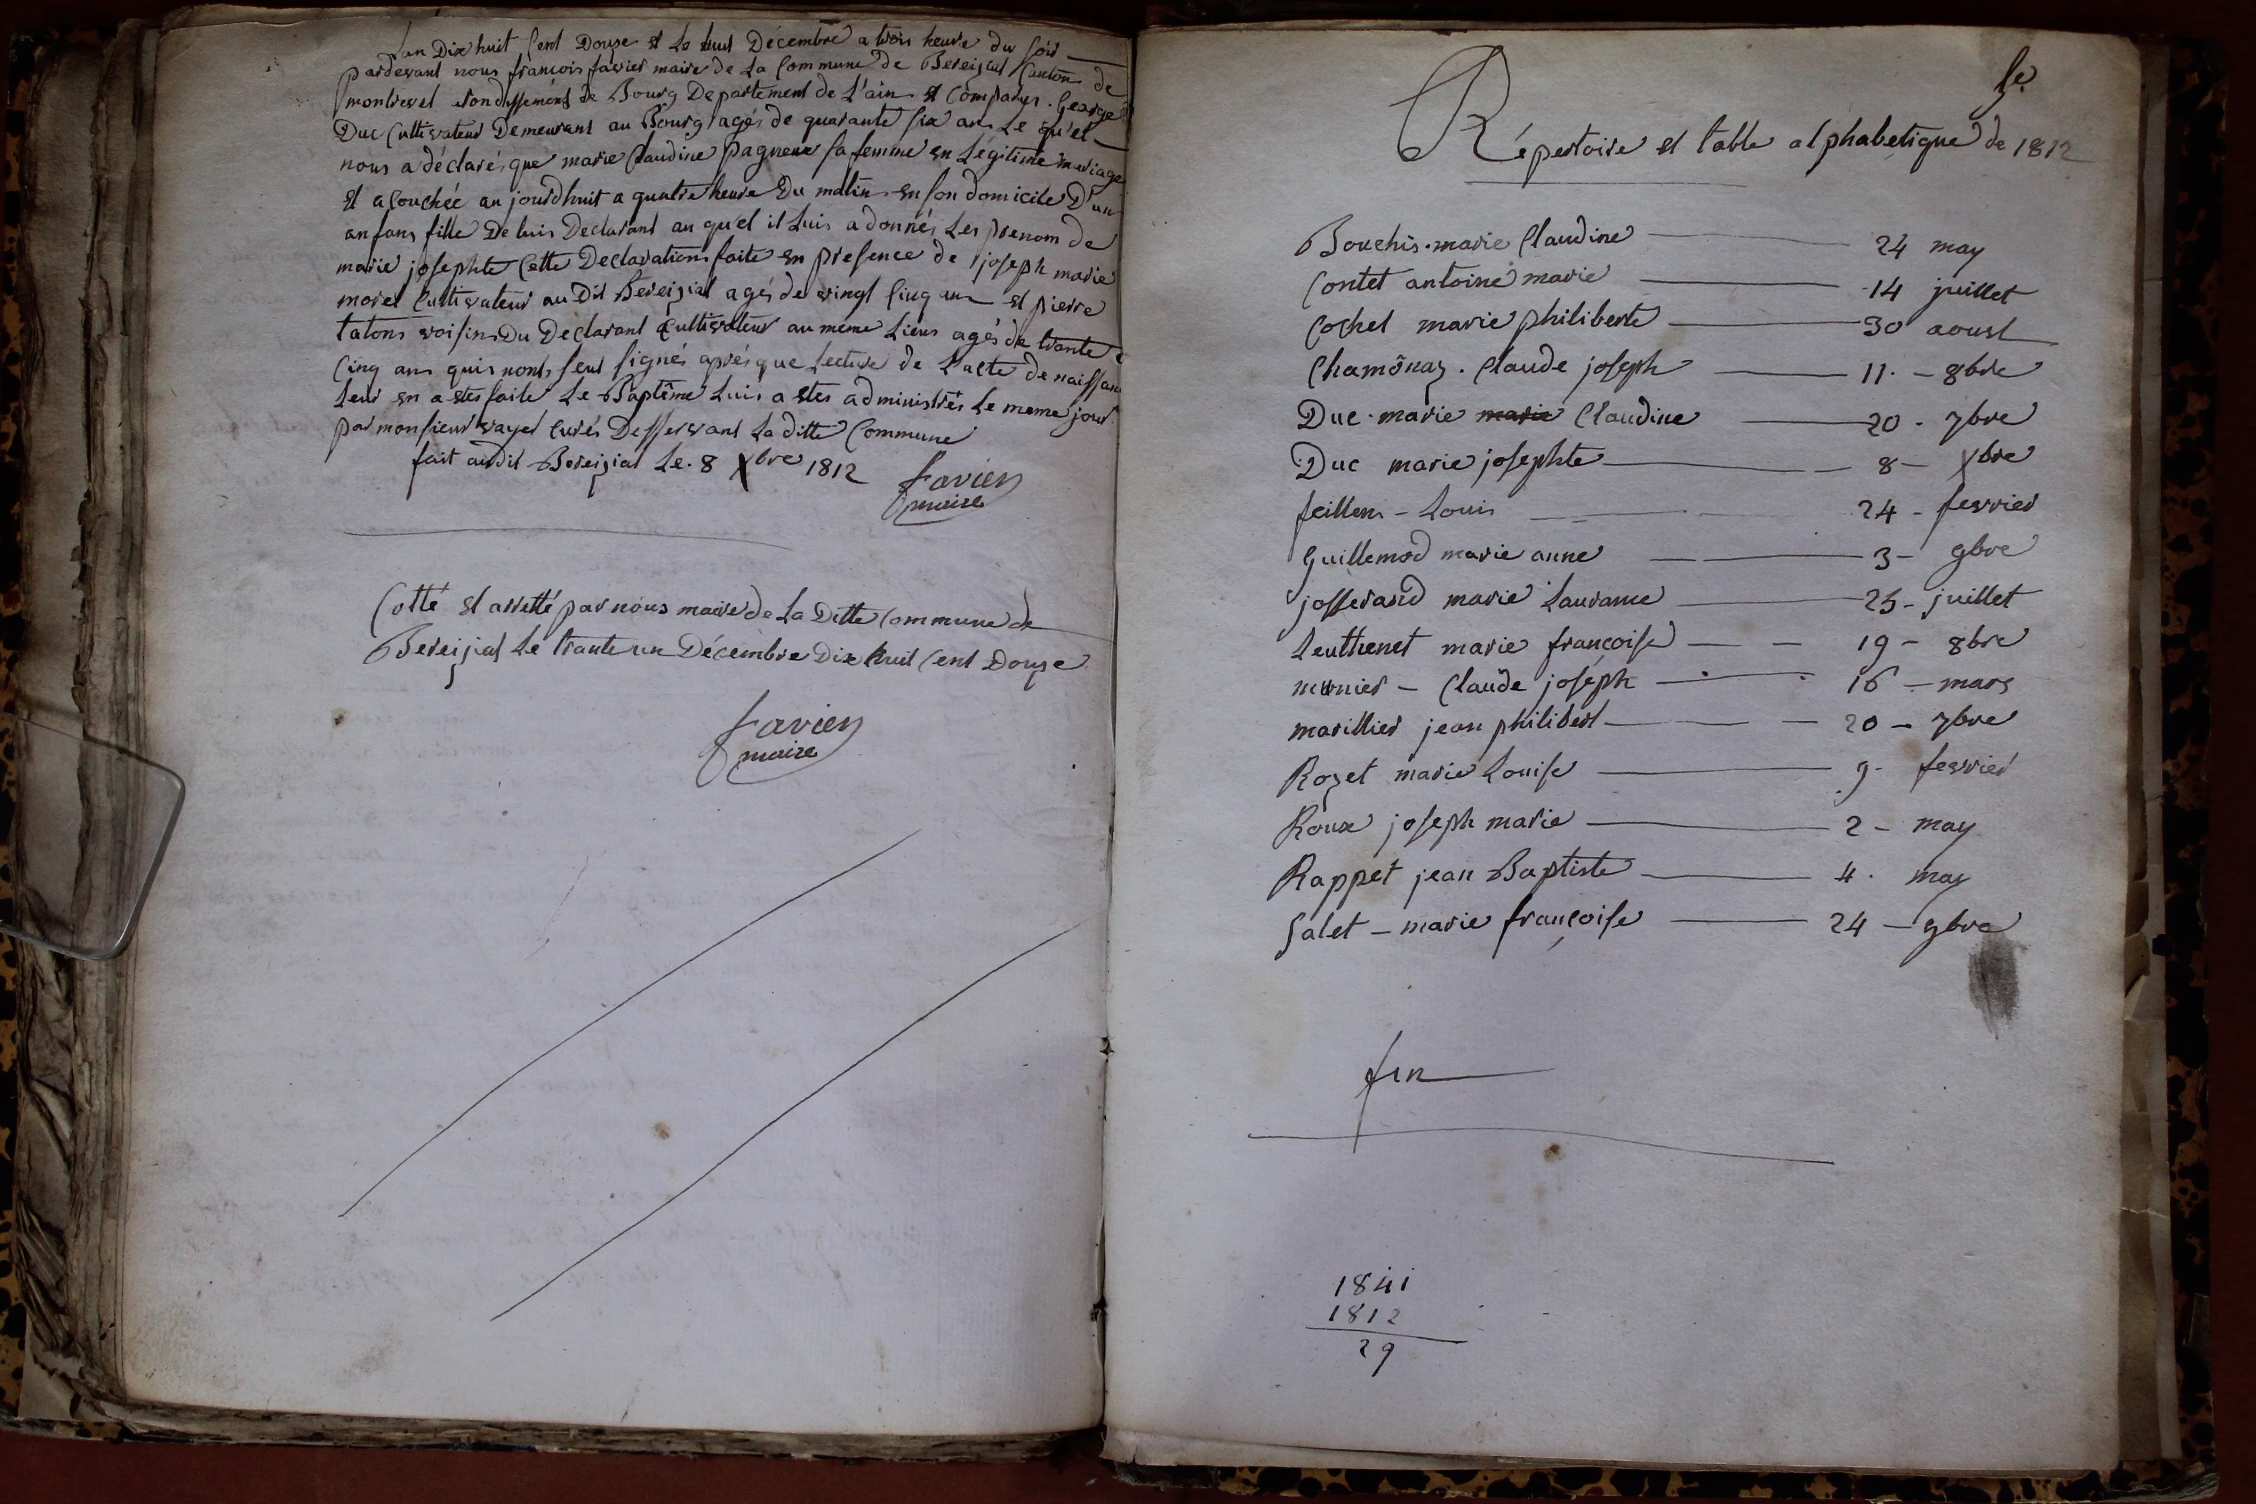 Lan Dix huit Cent Douze et Le huit Décembre a trois heure du soir
pardevant nous françois favier maire de La Commune de Bereizial Canton de
montrevel Arondissement de Bourg Departement de L'ain et Comparus. George
Duc Cultivateur Demeurant au Bourg agés de quarante six ans Le quel
nous a déclarés que marie Claudine pagneux sa femme en Légitime mariage
et acouchée aujourdhuit a quatre heure du matin en son domicile D'un
anfans fille De luis Declarant au quel il Luis a donnés Les prenom de
marie josephte Cette Declaration faite en presence de joseph marie
morel Cultivateur au Dit Bereizial agés de vingt Cinq ans et pierre
talons voisins Du Declarant Cultivateur au meme Lieus agés de trante
Cinq ans quis nonts seut signés aprés que Lecture de L'acte de naissans
Leur en a etes faite Le Baptême Luis a etes administrés Le meme jour
par monsieur vayel curés Desservant La ditte Commune
fait audit Bereizial Le. 8 Xbre 1812 favier
maire
Cotté et arretté par nous maire de La Ditte Commune de
Bereizial Le trante un Décembre Dix huit Cent Douze
favier
maire
Répertoire et table alphabetique de 1812
Bouchis. marie Claudine 24 may
Contet antoine marie 14 juillet
Cochet marie philiberte 30 aoust
Chamônaz. Claude joseph 11. - 8bre
Duc. marie marie Claudine 20. 7bre
Duc marie josephte 8 - Xbre
feillens - Louis 24 - fevrier
Guillemod marie anne 3 - 9bre
josserand marie Laurance 25 - juillet
Leuthenet marie françoise 19 - 8bre
munier - Claude joseph 16 - mars
marillier jean philibert 20 - 7bre
Rozet marie Louise 9 - fevrier
Roux joseph marie 2 - may
Rappet jean Baptiste 4. may
Salet - marie françoise 24 - 9bre
fin
1841
1812
29